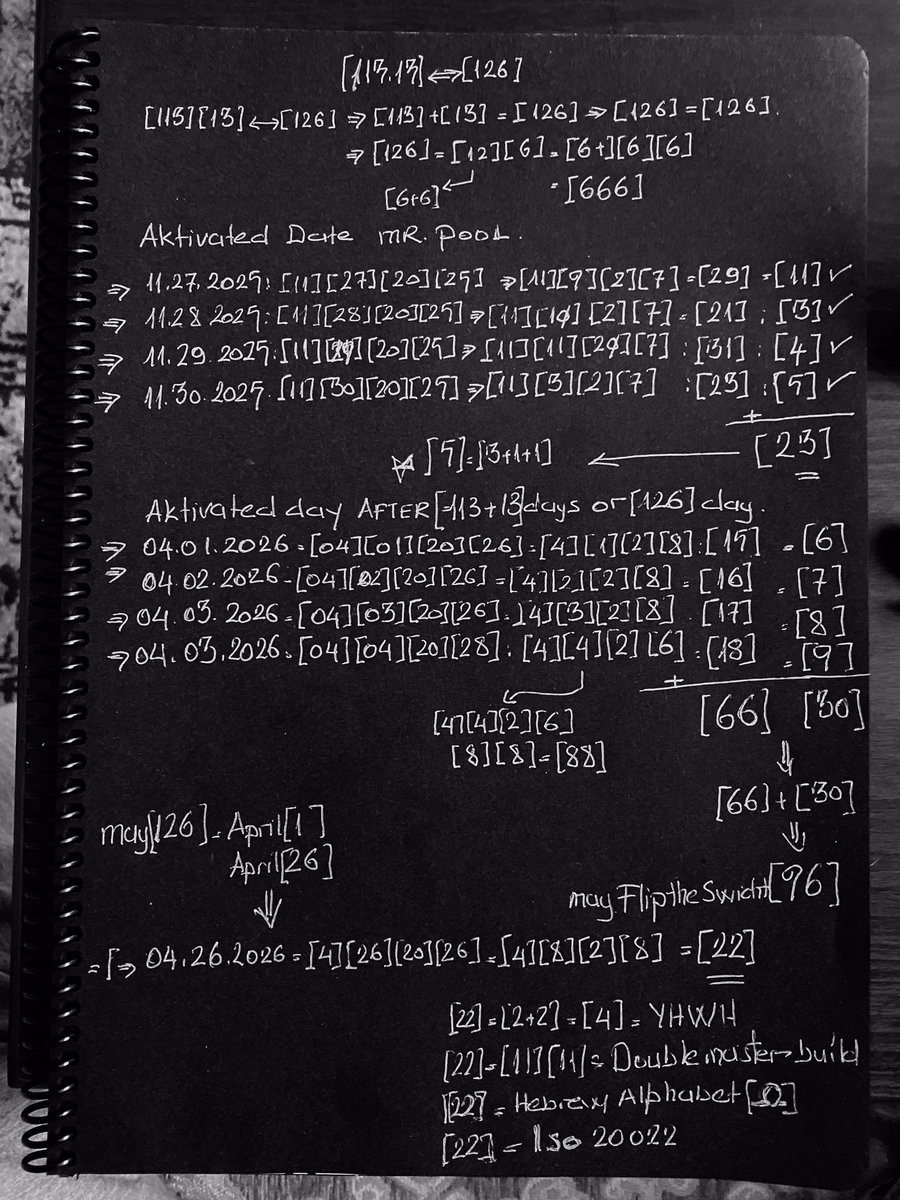 [113.13] ⇔ [126]
[113][13] ↔ [126] ⇒ [113]+[13] = [126] ⇒ [126] = [126].
⇒ [126] = [12][6] = [6+][6][6]
[6+6]
= [666]
Aktivated Date MR. POOL.
⇒ 11.27.2025: [11][27][20][25] ⇒ [11][9][2][7] = [29] = [11] ✓
⇒ 11.28.2025: [11][28][20][25] ⇒ [11][10][2][7] = [21] : [3] ✓
⇒ 11.29.2025: [11][29][20][25] ⇒ [11][11][20][7] : [31] : [4] ✓
⇒ 11.30.2025. [11][30][20][25] ⇒ [11][3][2][7] : [23] : [5] ✓
+
[23]
[5] = [3+1+1]
Aktivated day AFTER [113+13] days or [126] day.
⇒ 04.01.2026 = [04][01][20][26] = [4][1][2][8] : [15] = [6]
⇒ 04.02.2026 = [04][02][20][26] = [4][2][2][8] = [16] = [7]
⇒ 04.03.2026 = [04][03][20][26] = [4][3][2][8] . [17] = [8]
⇒ 04.03.2026 = [04][04][20][28] : [4][4][2][6] = [18] = [9]
+
[66] [30]
[4][4][2][6]
[8][8] = [88]
[66]+[30]
may[126] = April[1]
April[26]
may Flip the [96]
= [⇒ 04.26.2026 = [4][26][20][26] = [4][8][2][8] = [22]
[22] = [2+2] = [4] = YHWH
[22] = [11][11] = Double master build
[22] = Hebrew Alphabet [Ω]
[22] = Iso 20022